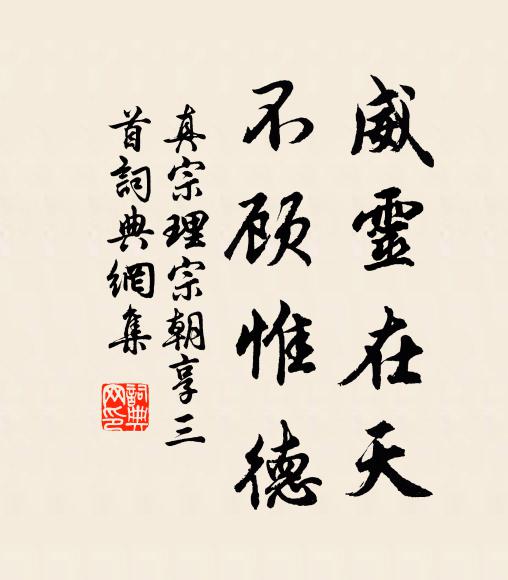 威靈在天
不顾惟德
真宗理宗朝享三
首詞典網集
詞典
网印